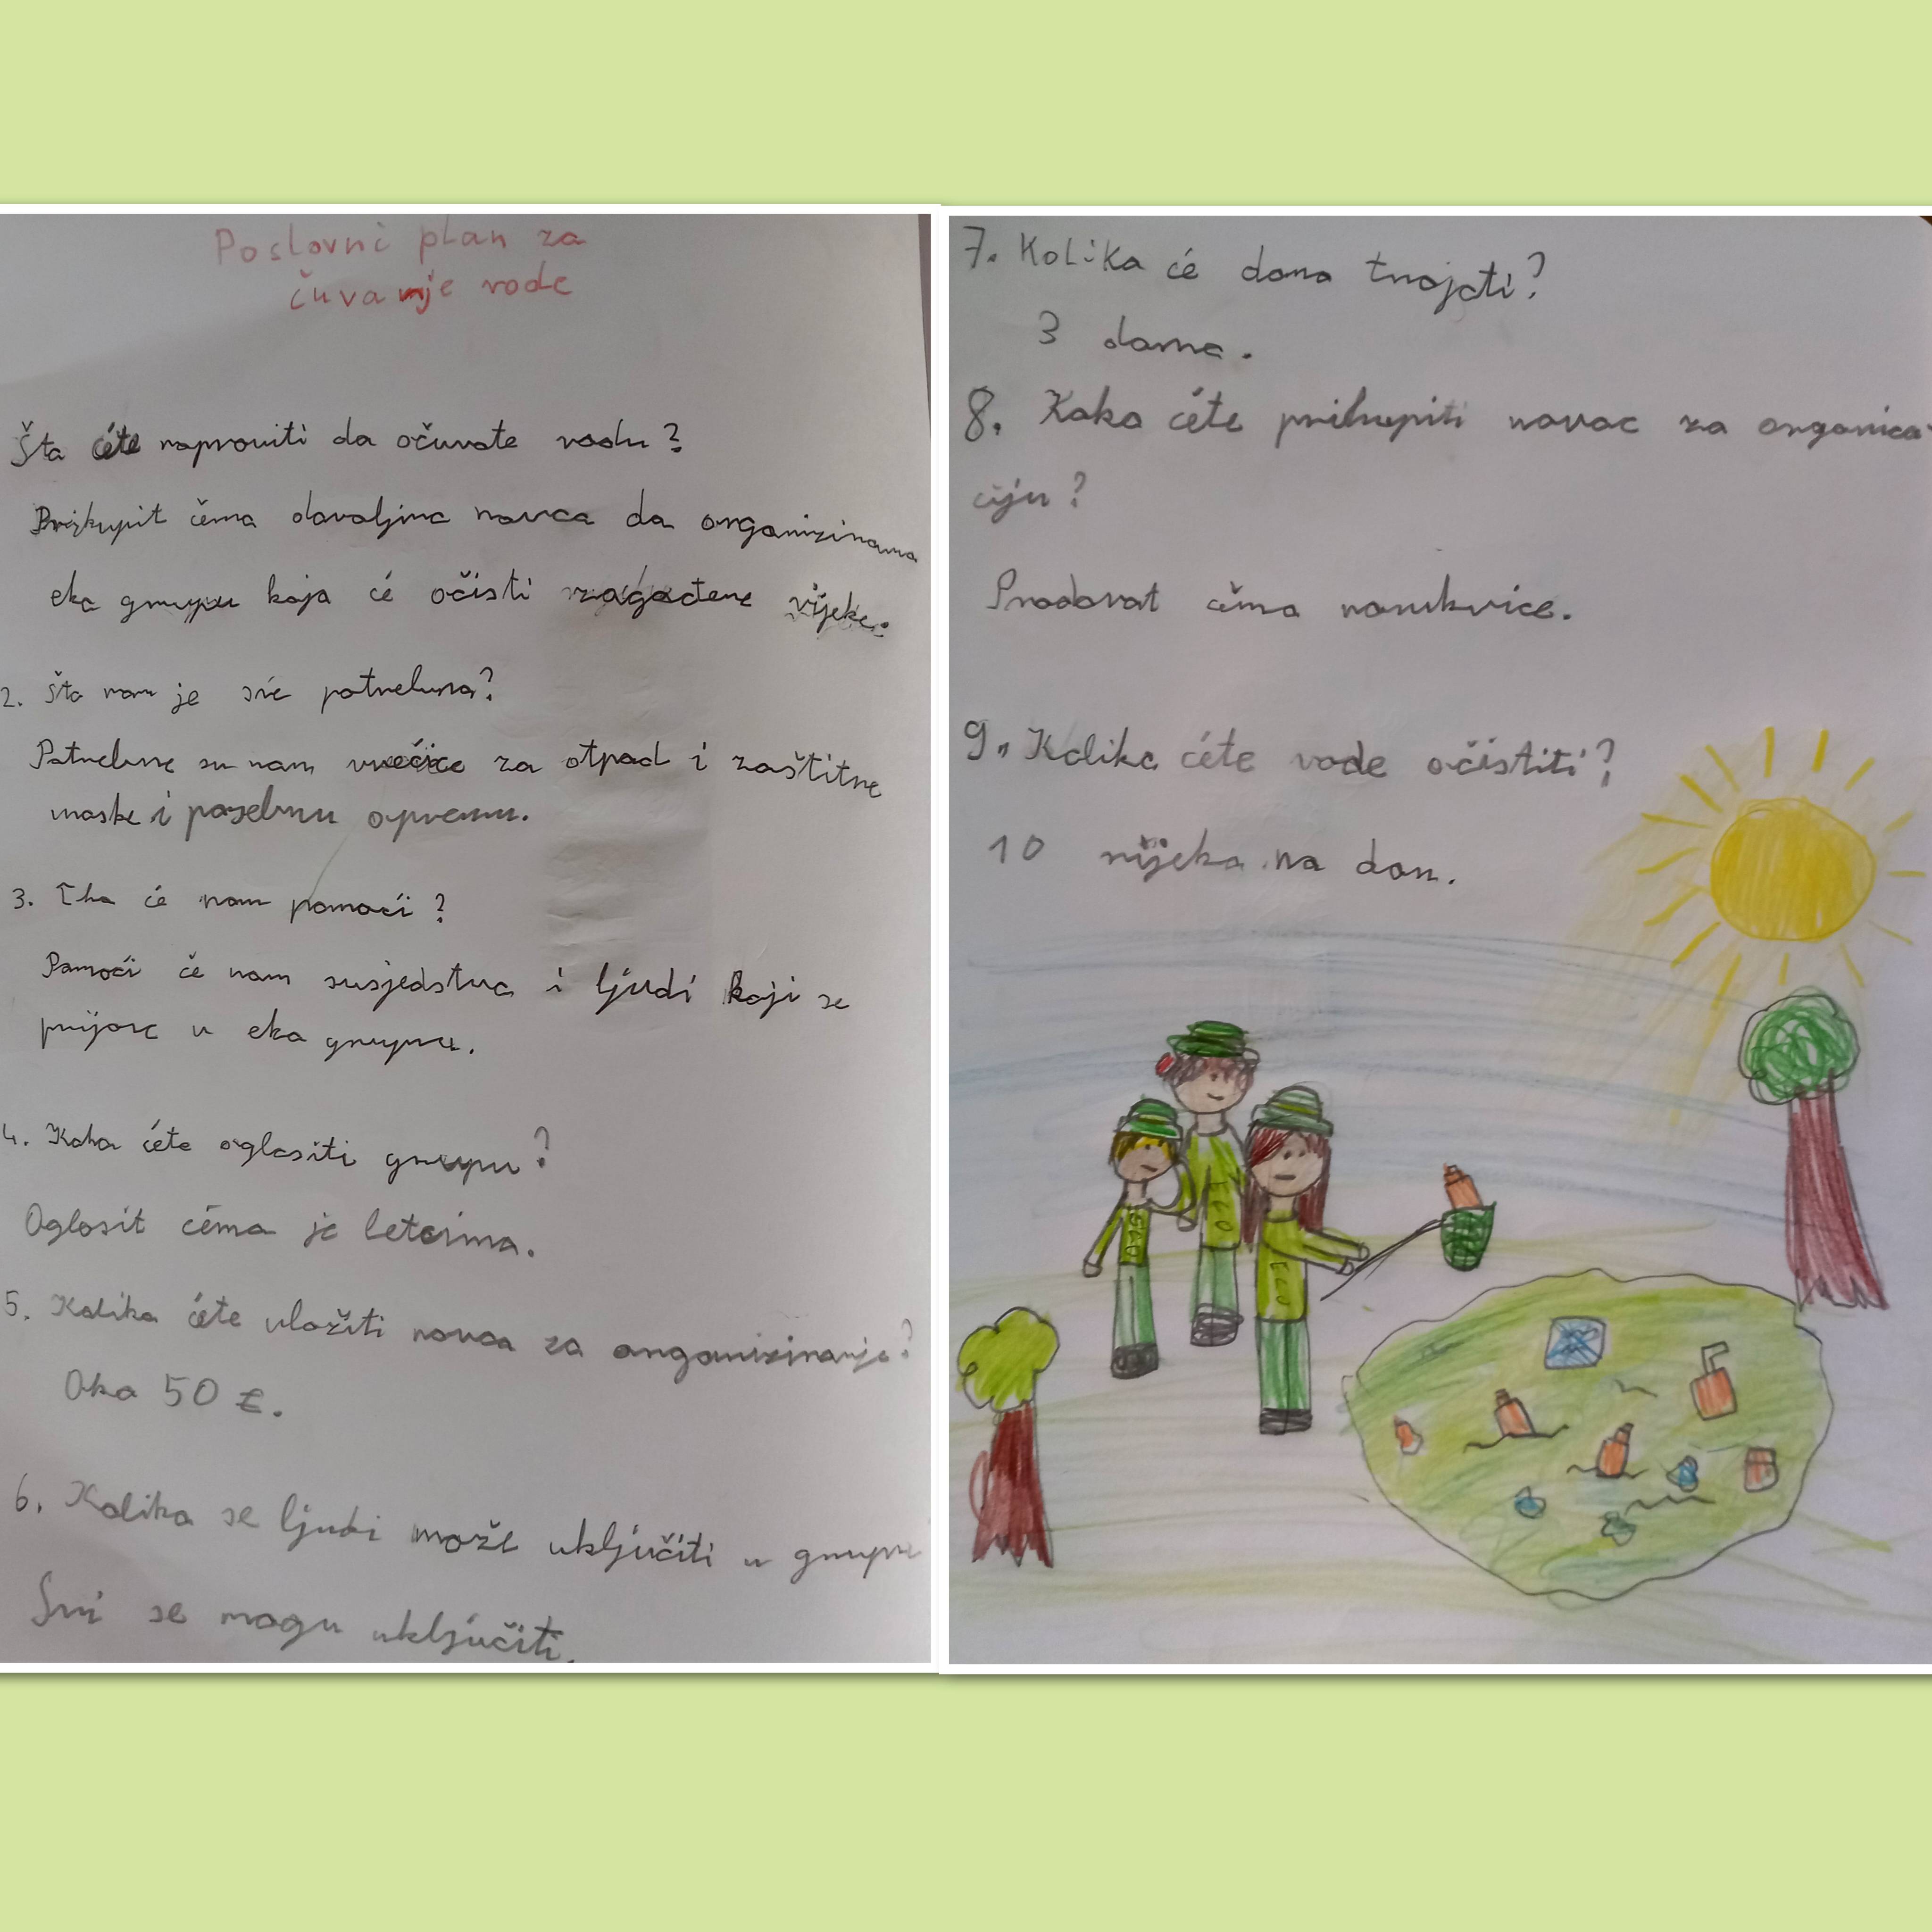 Poslovni plan za
čuvanje vode
Šta ćete napraviti da očuvate vodu?
Prikupit ćemo dovoljno novca da organiziramo
eko grupu koja će očisti zagađene rijeke.
2. Šta nam je sve potrebno?
Potrebne su nam vrećice za otpad i zaštitne
maske i posebnu opremu.
3. Tko će nam pomoći?
Pomoći će nam susjedstvo i ljudi koji se
prijave u eko grupu.
4. Kako ćete oglasiti grupu?
Oglosit ćemo je letcima.
5. Koliko ćete uložiti novca za organiziranje?
Oko 50 €.
6. Koliko se ljudi može uključiti u grupu
Svi se mogu uključiti.
7. Koliko će dana trajati?
3 dana.
8. Kako ćete prikupiti novac za organiza-
ciju?
Prodavat ćemo narukvice.
9. Koliko ćete vode očistiti?
10 rijeka na dan.
ECO
ECO
ECO